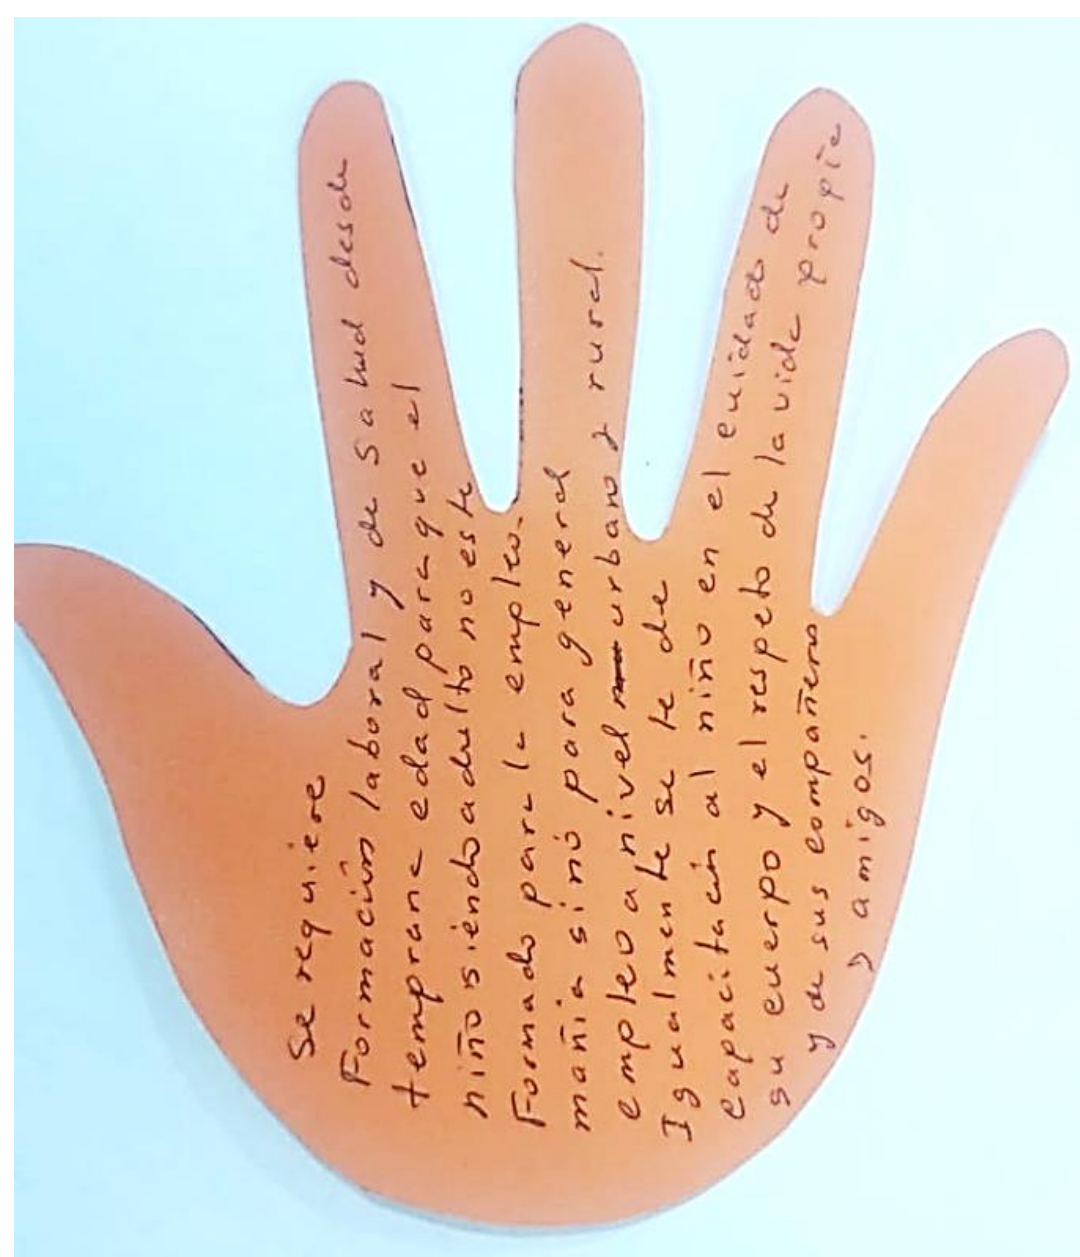 Se requiere
Formación laboral y de salud desde
temprana edad para que el
niño siendo adulto no este
Formado para la empleo-
mañia sinó para general
empleo a nivel urbano y rural.
Igualmente se le de
capacitación al niño en el cuidado de
su cuerpo y el respeto de la vida propia
y de sus compañeros
y amigos.